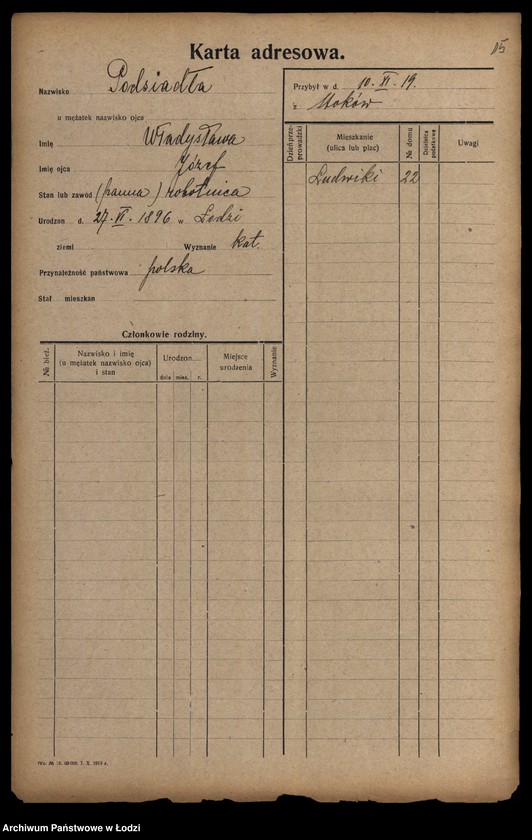 15
Karta adresowa.
Nazwisko Podsiadła
u mężatek nazwisko ojca
Imię Władysława
Imię ojca Józef
Stan lub zawód (panna) robotnica
Urodzon d. 27. VI. 1896 w Łodzi
ziemi Wyznanie kat.
Przynależność państwowa polska
Stał mieszkan
Członkowie rodziny.
№ bież.
Nazwisko i imię
(u mężatek nazwisko ojca)
i stan
Urodzon
dnia mies. r.
Miejsce
urodzenia
Wyznanie
Przybył w d. 10. XI. 19.
z Stoków
Dzień prze-
prowadzki
Mieszkanie
(ulica lub plac)
№ domu
Dzielnica
podatkowa
Uwagi
Ludwiki 22
X. 1919 r.
Archiwum Państwowe w Łodzi